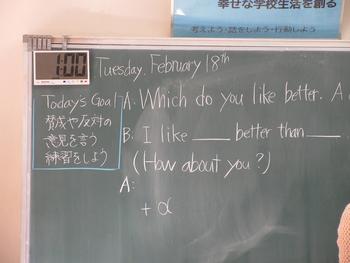 幸せな学校生活を創る
考えよう・話をしよう・行動しよう
1:00
Tuesday. February 18th
Today's Goal
賛成や反対の
意見を言う
練習をしよう
A. Which do you like better. A
B. I like ___ better than ___.
(How about you?)
A:
+ α